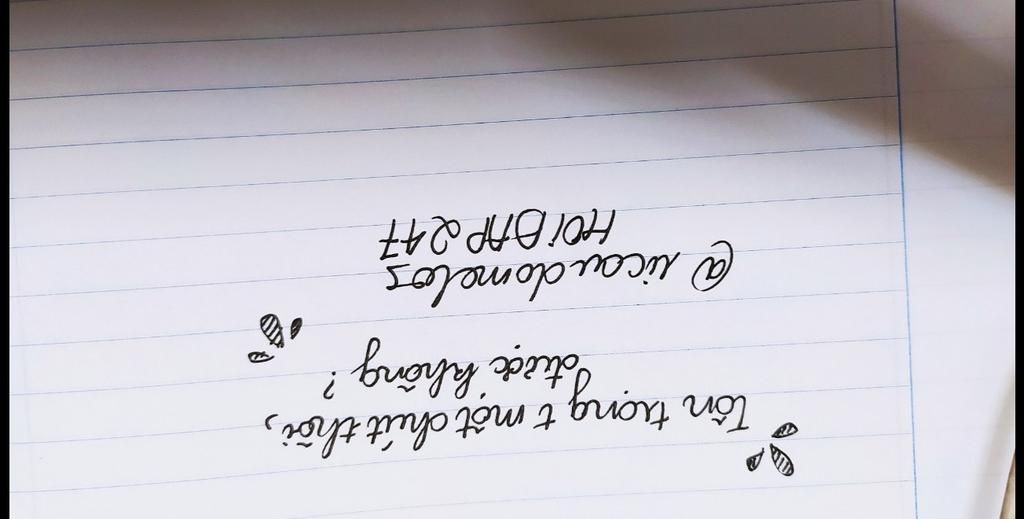 Tôn trọng t một chút thôi,
được không?
@ricaudomelos
HOIĐAP 247